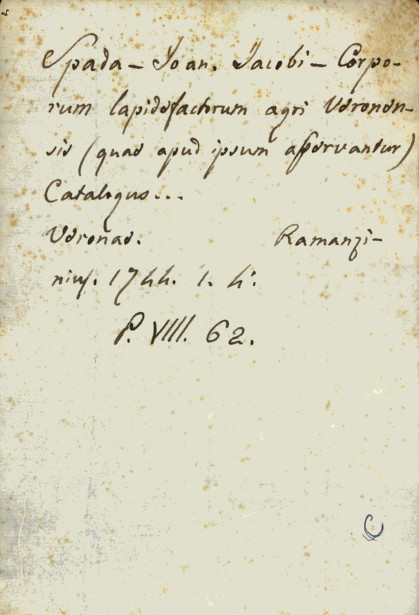 Spada – Joan. Jacobi – Corpo-
rum lapidefactorum agri Veronen-
sis (quae apud ipsum asservantur)
Catalogus...
Veronae. Ramanzi-
nius. 1744. 1. 4°.
P. VIII. 62.
C